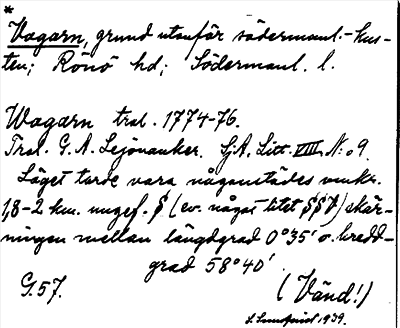 *
Vagarn, grund utanför södermanl.-kus-
ten; Rönö hd; Södermanl. l.
Wagarn trol. 1774-76.
Trol. G. A. Lejonanker. SjA, Litt. VIII N:o 9.
Läget torde vara någonstädes omkr.
1,8-2 km. ungef. S (ev. något litet SSO) skär-
ningen mellan längdgrad 0°35' o. bredd-
grad 58°40'.
G.57.
(Vänd!)
S. Lundqvist 1939.